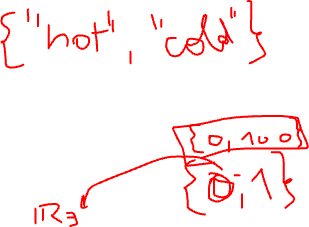 {"hot", "cold"}
{0, 100}
{0, 1}
IR3